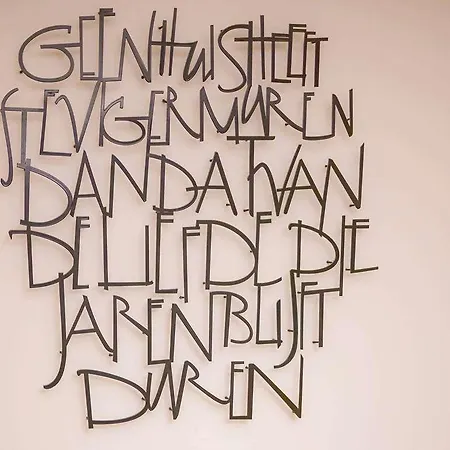 GEEN HUIS HEEFT
STEVIGER MUREN
DAN DAT VAN
DE LIEFDE DIE
JAREN BLIJFT
DUREN